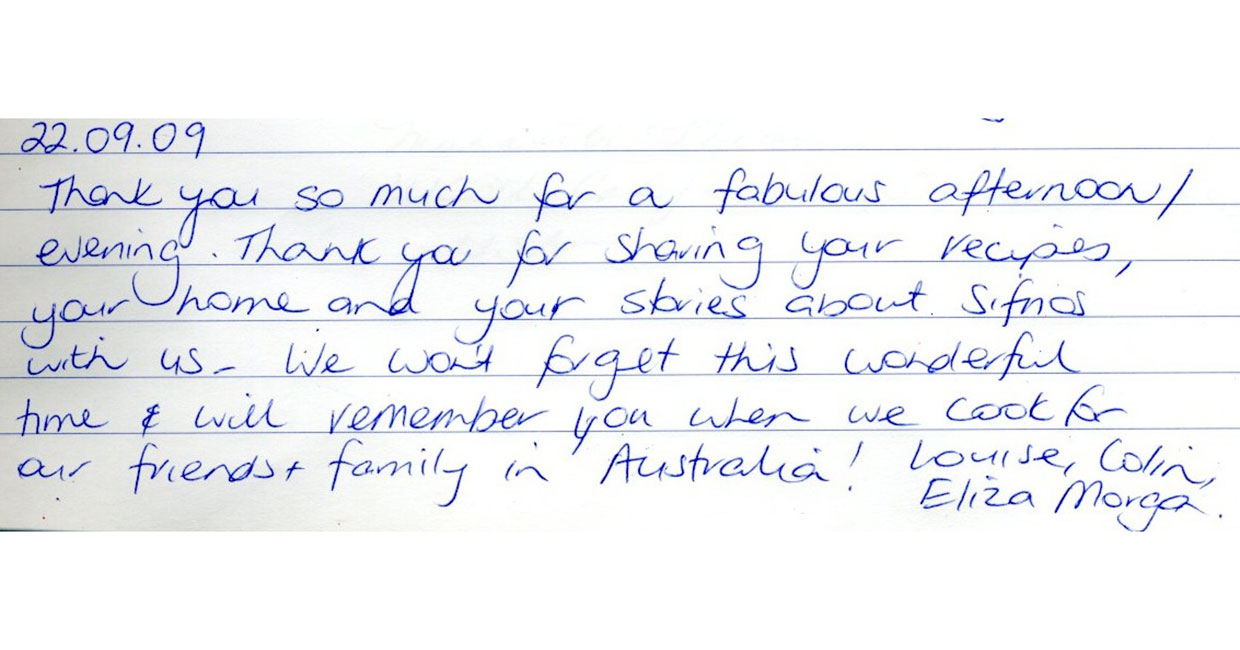 22.09.09
Thank you so much for a fabulous afternoon/
evening. Thank you for sharing your recipes,
your home and your stories about Sifnos
with us - We won't forget this wonderful
time & will remember you when we cook for
our friends + family in Australia! Louise, Colin,
Eliza Morgan.